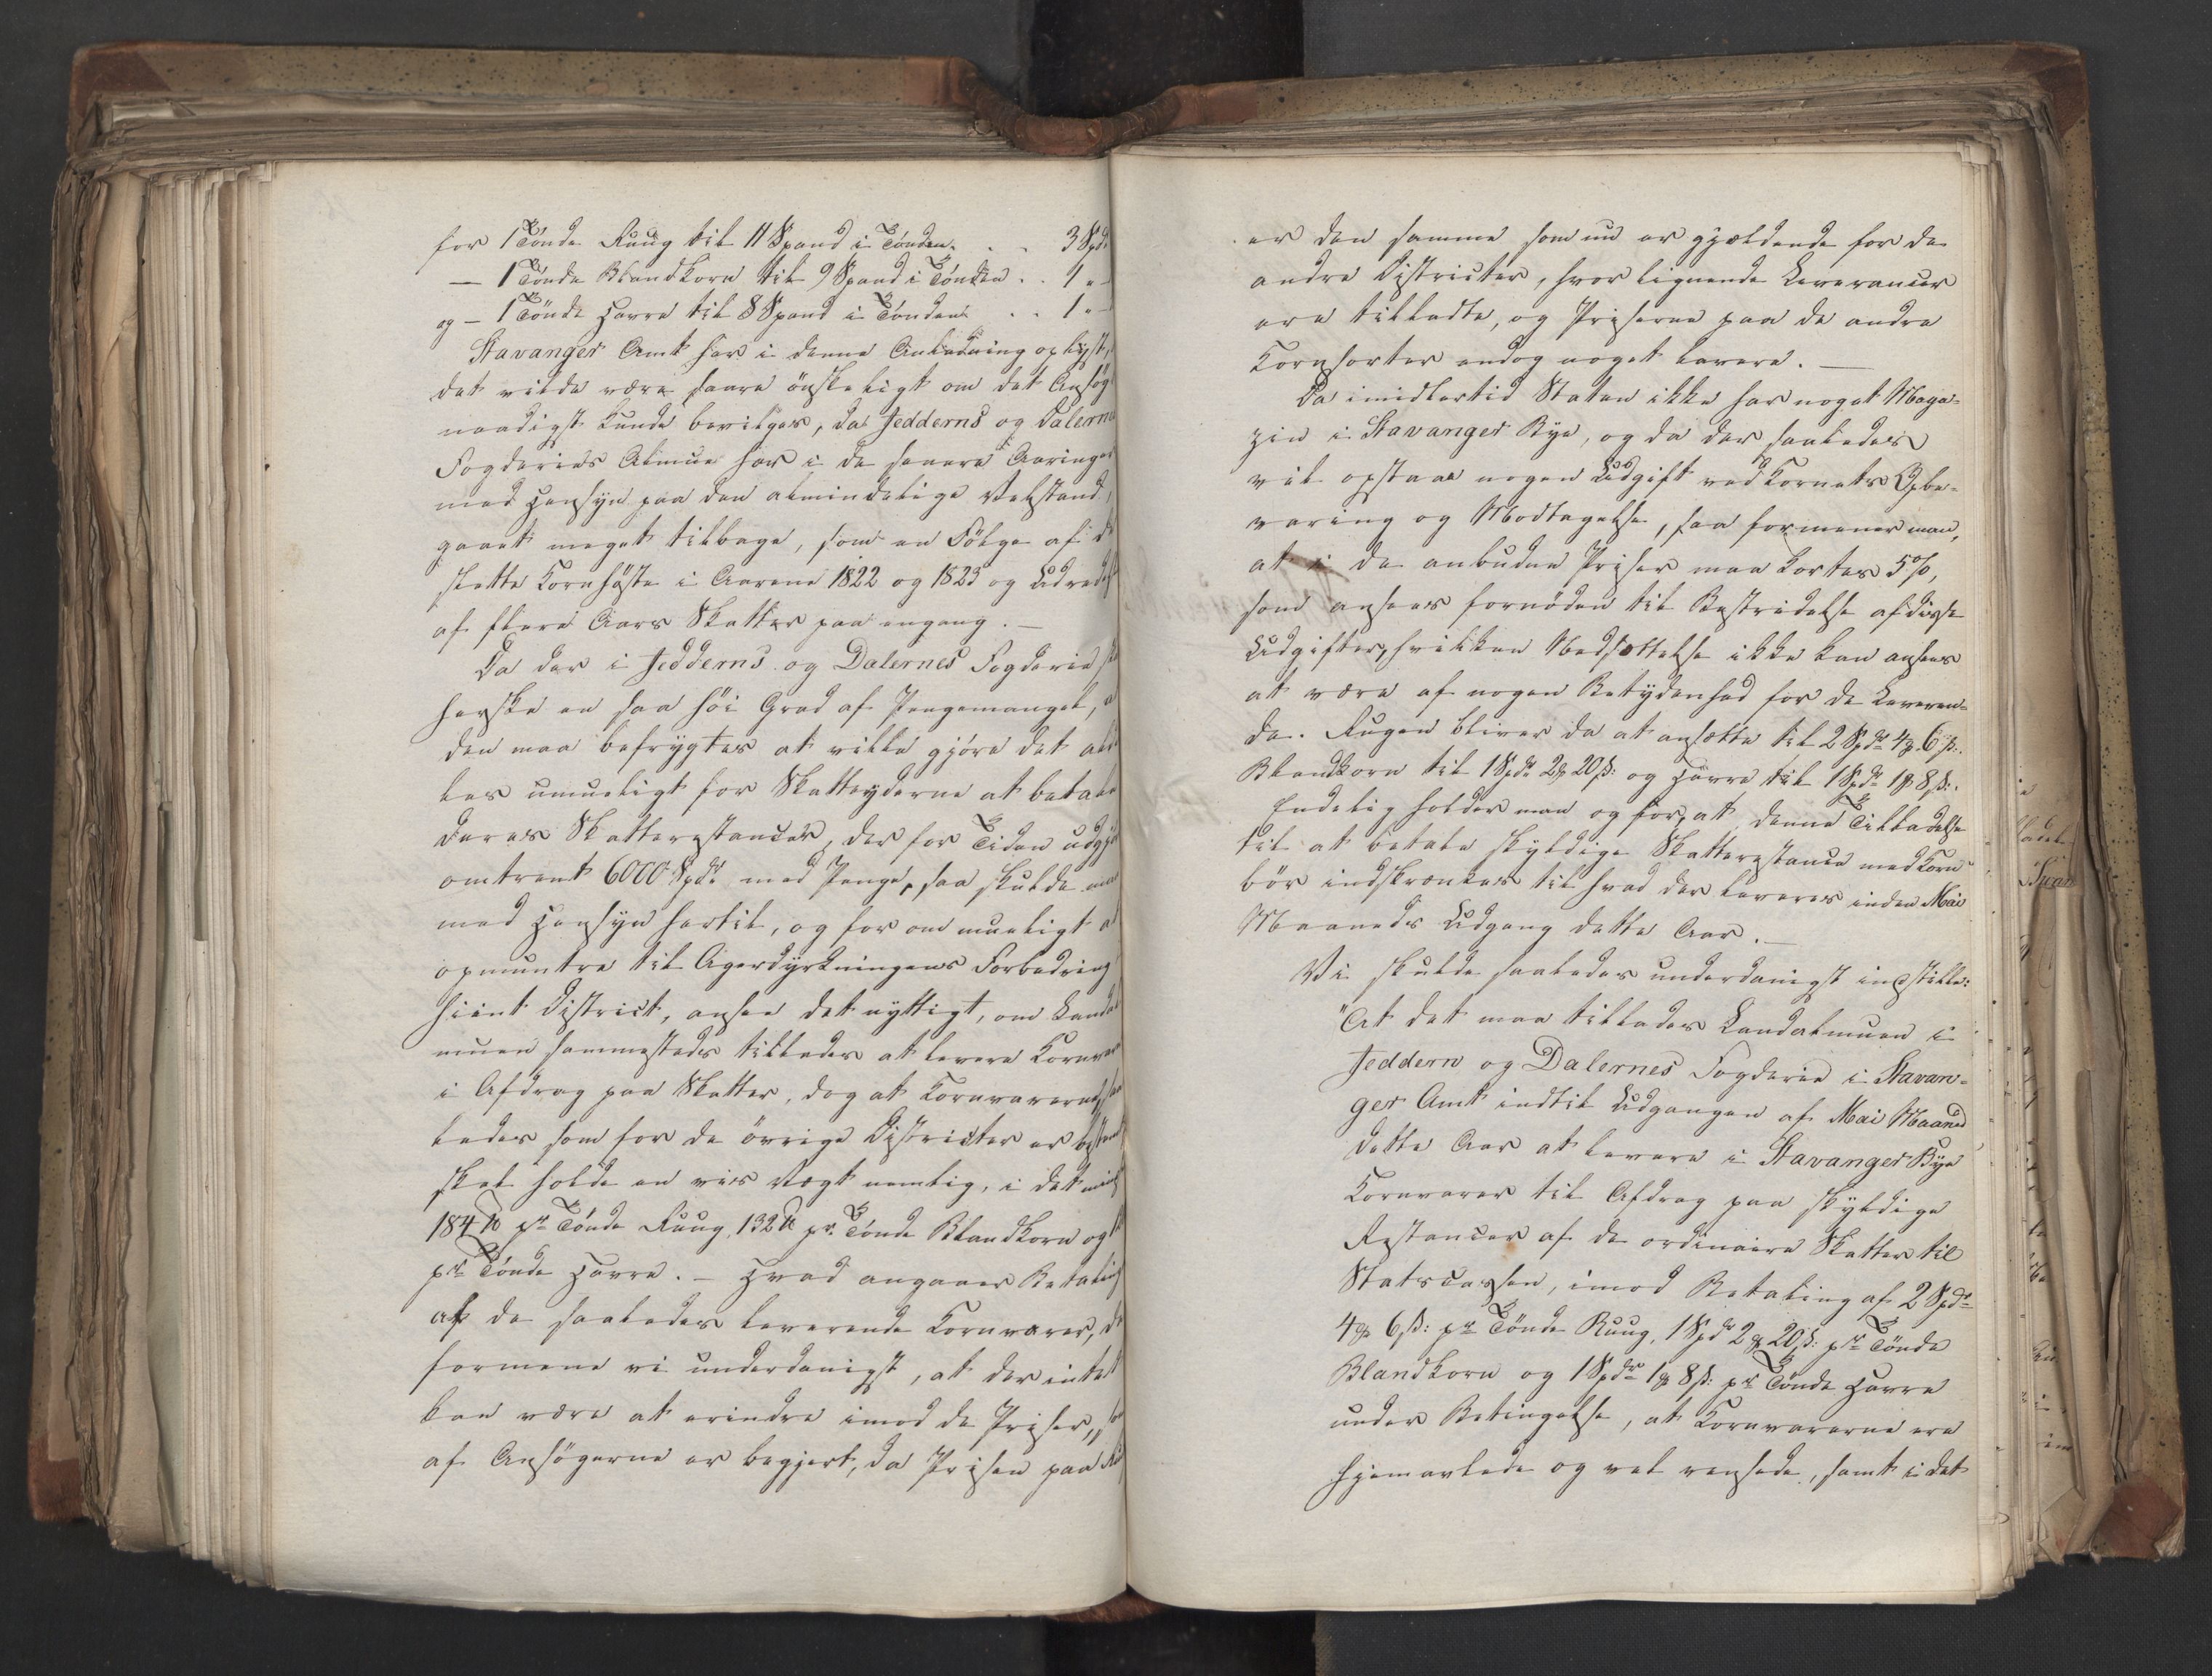 for 1 Tønde Ruug til 11 Spand i Tønden . . 3 Spd
— 1 Tønde Blandkorn til 9 Spand i Tønden . . 1 " -
og — 1 Tønde Havre til 8 Spand i Tønden . . 1 " -
Stavanger Amt har i denne Anledning oplyst,
det vilde være saare ønskeligt om det Ansøg
naadigst kunde bevilges, da Jedderns og Dalerne
Fogderies Almue har i de senere Aaringer
med Hensyn paa den almindelige Velstand,
gaaet meget tilbage, som en Følge af d
slette Kornhøste i Aarene 1822 og 1823 og Udredels
af flere Aars Skatter paa engang. —
Da der i Jedderns og Dalernes Fogderie sk
herske en saa høi Grad af Pengemangel, a
den maa befrygtes at ville gjøre det alde
les umueligt for Skatteyderne at betale
deres Skatterestancer, der for Tiden udgjør
omtrent 6000 Spdr med Penge, saa skulde man
med Hensyn hertil, og for om mueligt a
opmuntre til Agerdyrkningens Forbedring
hiint District, ansee det nyttigt, om Landal
muen sammesteds tillades at levere Kornvare
i Afdrag paa Skatter, dog at Kornvarerne, saa
ledes som for de øvrige Districter er bestemt
skal holde en vis Vægt nemlig, i det mind
184 ℔ pr Tønde Ruug, 132 ℔ pr. Tønde Blandkorn og
pr Tønde Havre. — Hvad angaaer Betaling
af de saaledes leverende Kornvarer, da
formene vi underdanigst, at der intet
kan være at erindre imod de Priser, so
af Ansøgerne er begjert, da Prisen paa Ru
er den samme som nu er gjældende for de
andre Districter, hvor lignende Leverancer
ere tilladte, og Priserne paa de andre
Kornsorter endog noget lavere. —
Da imidlertid Staten ikke har noget Maga-
zin i Stavanger Bye, og da der saaledes
vil opstaae nogen Udgift ved Kornets Opbe-
varing og Modtagelse, saa formener man,
at i de anbudne Priser maa kortes 5%,
som ansees fornøden til Bestridelse af disse
Udgifter, hvilken Nedsættelse ikke kan ansees
at være af nogen Betydenhed for de Leveren-
de. Rugen bliver da at ansætte til 2 Spdr 4 ꝗ 6 ß.
Blandkorn til 1 Spdr 2 ꝗ 20 ß: og Havre til 1 Spdr 1 ꝗ 8 ß:.
Endelig holder man og for, at denne Tilladelse
til at betale skyldige Skatterestance med Korn
bør indskrænkes til hvad der leveres inden Mai
Maaneds Udgang dette Aar. —
Vi skulde saaledes underdanigst indstille:
"At det maa tillades Landalmuen i
Jeddern og Dalernes Fogderie i Stavan-
ger Amt indtil Udgangen af Mai Maaned
dette Aar at levere i Stavanger Bye
Kornvarer til Afdrag paa skyldige
Restancer af de ordinaire Skatter til
Statscassen, imod Betaling af 2 Spdr
4 ꝗ 6 ß: pr Tønde Ruug, 1 Spdr 2 ꝗ 20 ß: pr Tønde
Blandkorn og 1 Spdr 1 ꝗ 8 ß: pr Tønde Havre
under Betingelse, at Kornvarerne ere
hjemavlede og vel rensede, samt i det